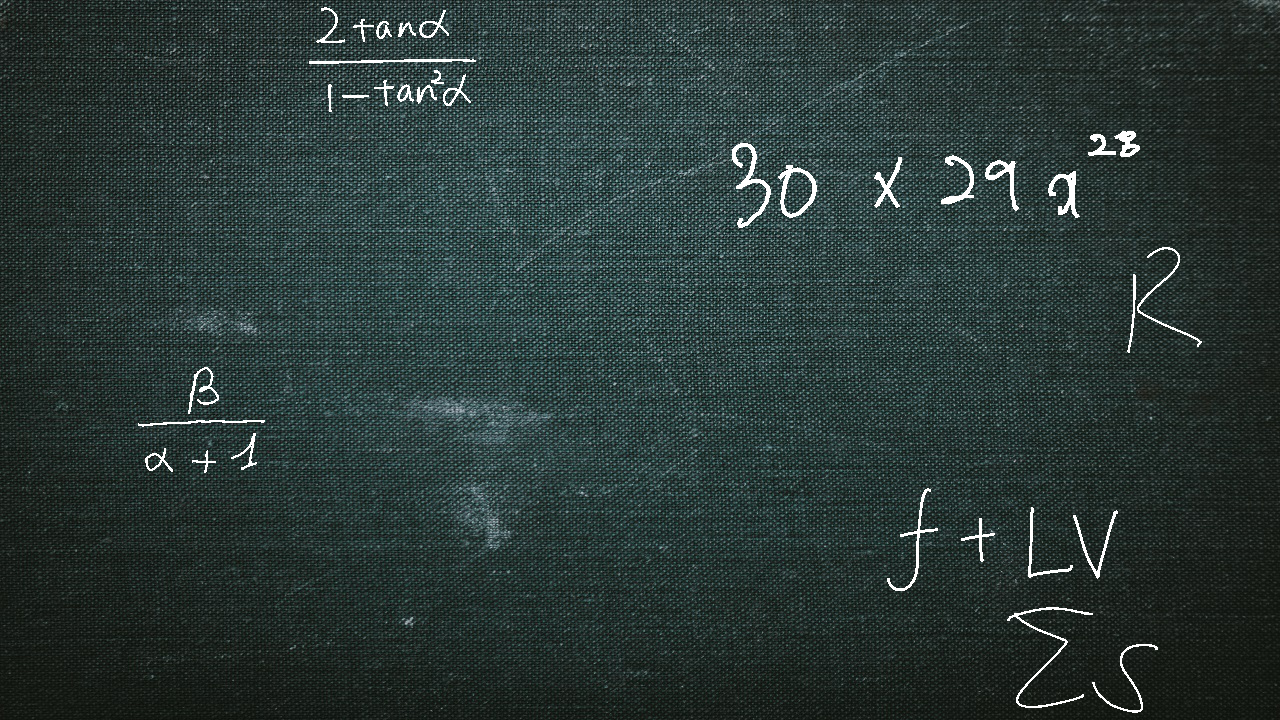 2tanα
1-tan²α
30 × 29x²⁸
R
β
α + 1
f + LV
ΣS